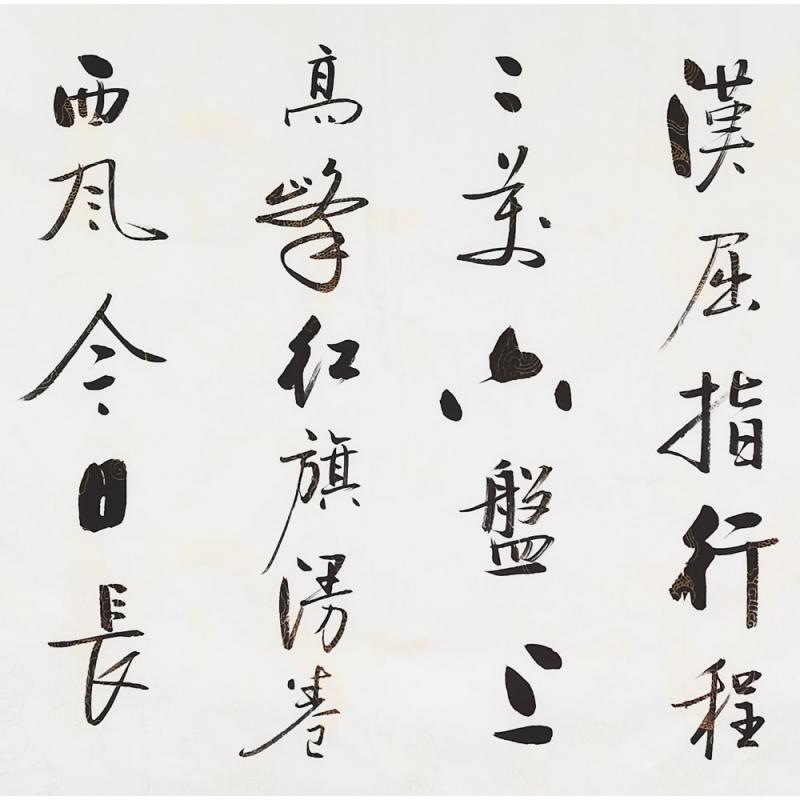 漢屈指行程
二萬六盤上
高峯紅旗漫卷
西風今日長